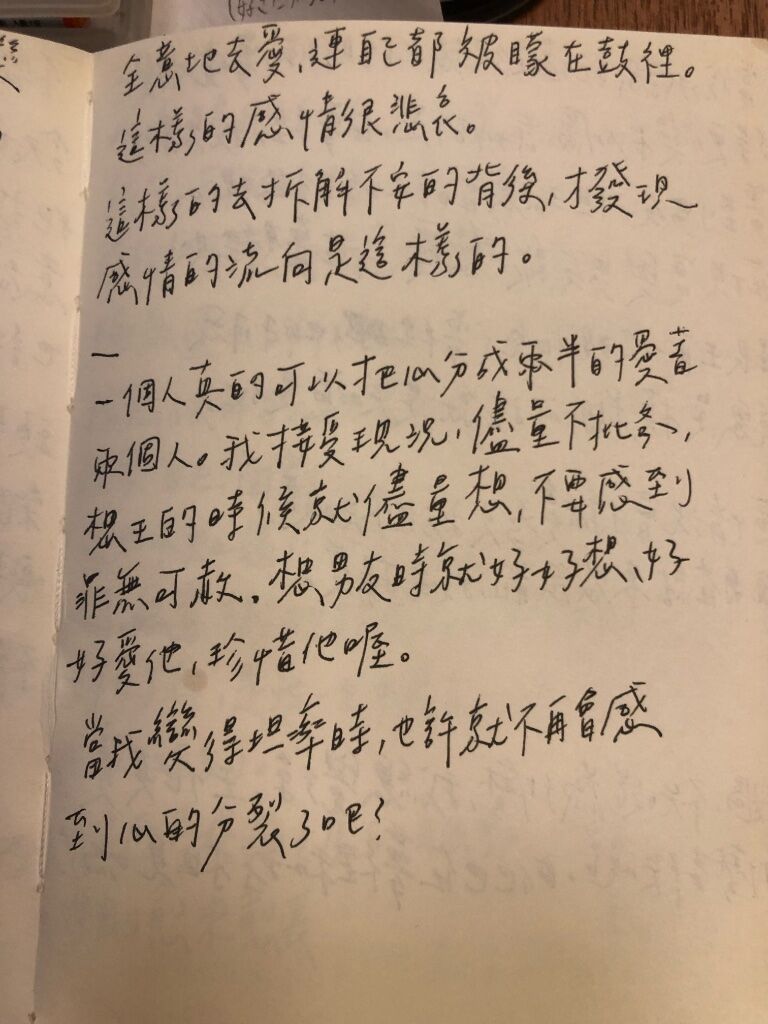 全意地去愛，連自己都被矇在鼓裡。
這樣的感情很悲哀。
這樣的去拆解不安的背後，才發現
感情的流向是這樣的。
—
一個人真的可以把心分成兩半的愛著
兩個人。我接受現況，儘量不批參，
想王的時候就儘量想，不要感到
罪無可赦。想男友時就好好想、好
好愛他，珍惜他喔。
當我變得坦率時，也許就不再會感
到心的分裂了吧？